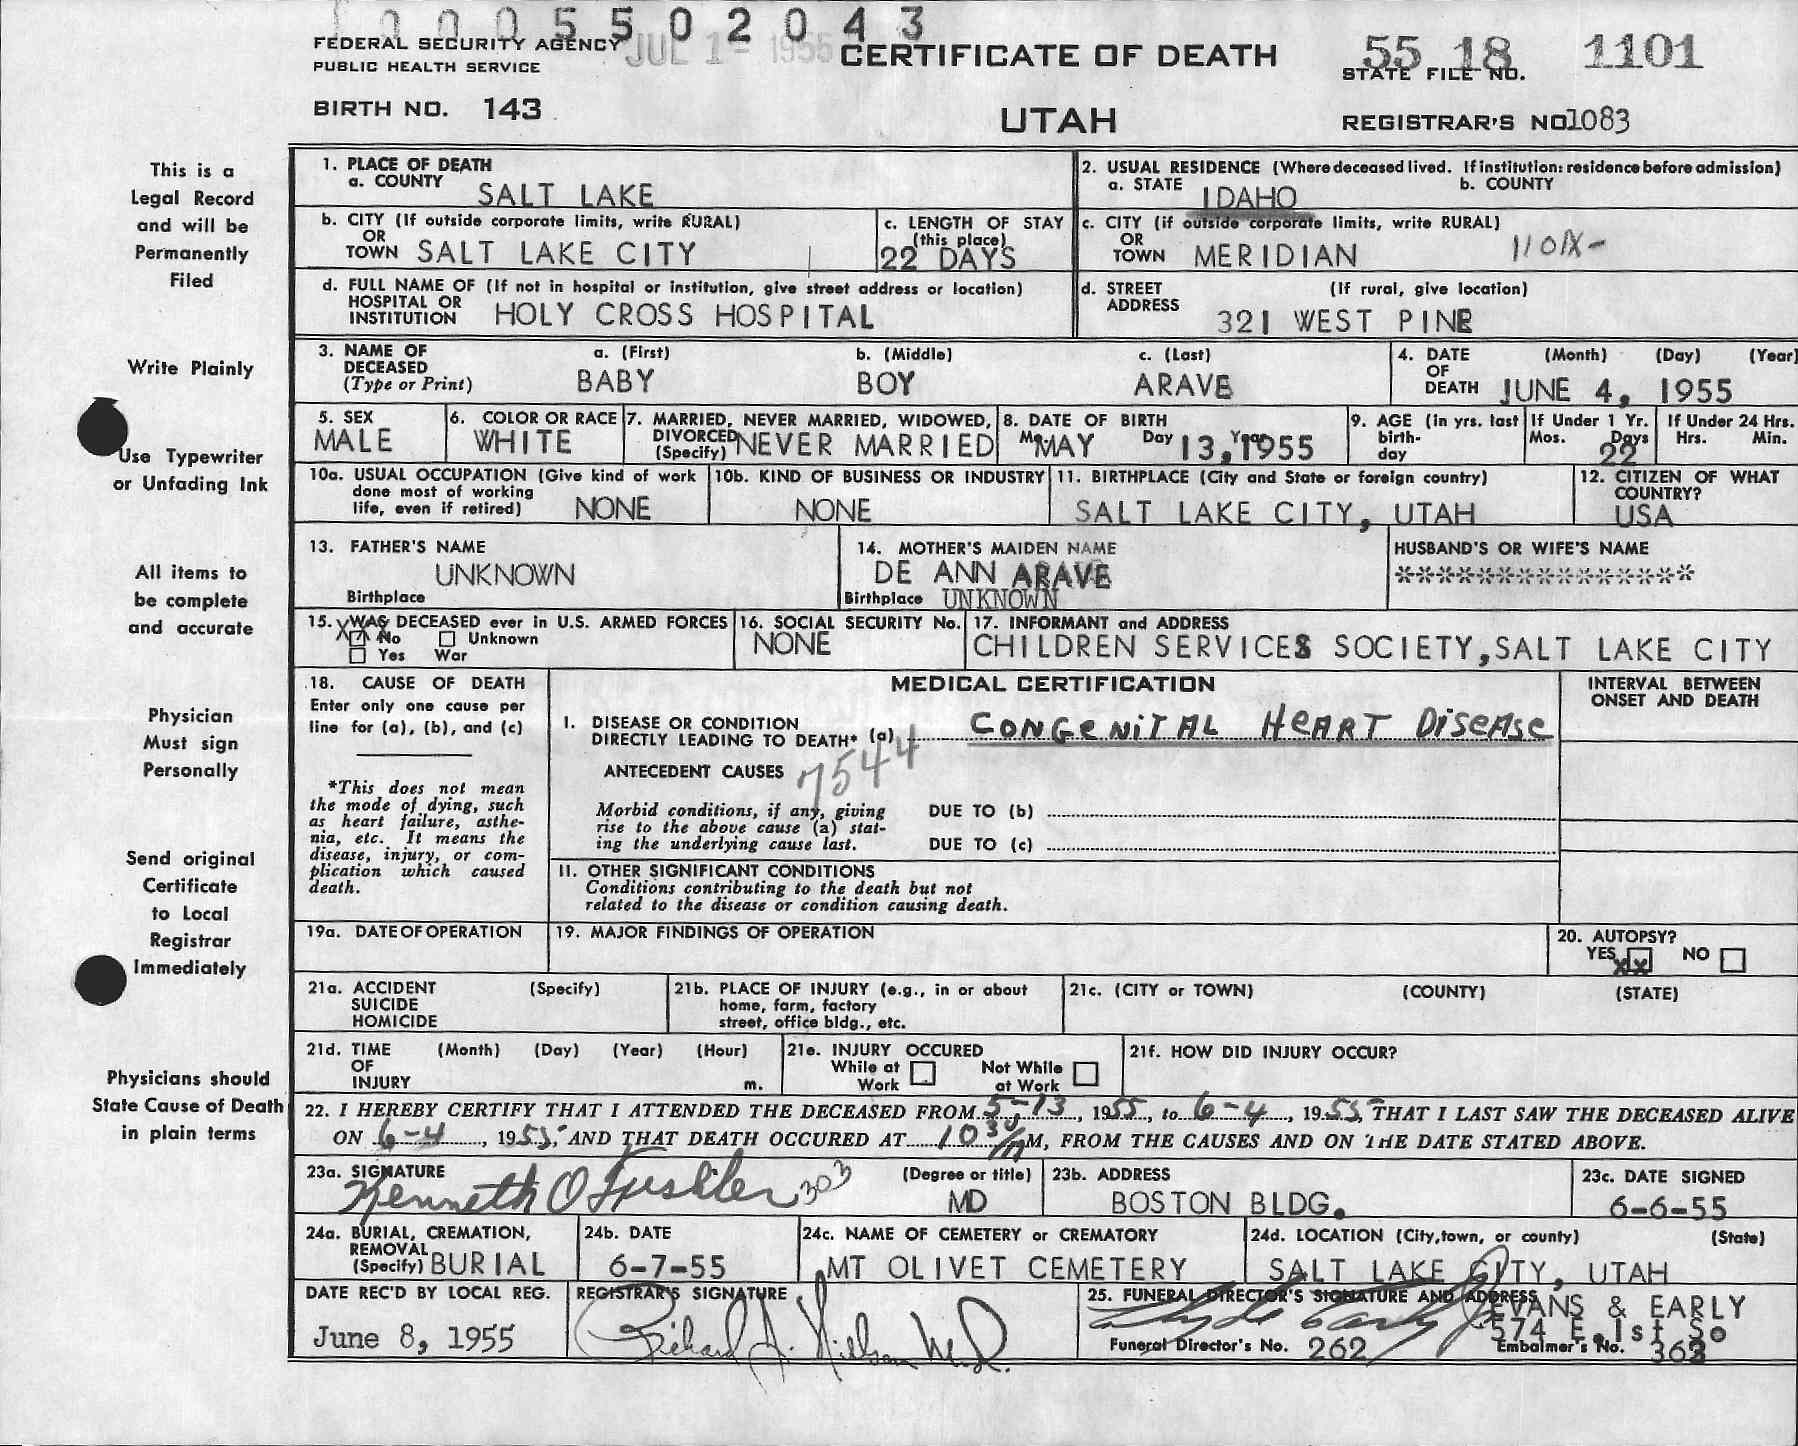 0005502043
FEDERAL SECURITY AGENCY JUL 1 - 1955 CERTIFICATE OF DEATH 55 18 1101
PUBLIC HEALTH SERVICE STATE FILE NO.
BIRTH NO. 143 UTAH REGISTRAR'S NO. 1083
This is a
Legal Record
and will be
Permanently
Filed
Write Plainly
Use Typewriter
or Unfading Ink
All items to
be complete
and accurate
Physician
Must sign
Personally
Send original
Certificate
to Local
Registrar
Immediately
Physicians should
State Cause of Death
in plain terms
1. PLACE OF DEATH
a. COUNTY SALT LAKE
2. USUAL RESIDENCE (Where deceased lived. If institution: residence before admission)
a. STATE IDAHO b. COUNTY
b. CITY (If outside corporate limits, write RURAL)
OR
TOWN SALT LAKE CITY
c. LENGTH OF STAY
(this place)
22 DAYS
c. CITY (if outside corporate limits, write RURAL)
OR
TOWN MERIDIAN 1101X-
d. FULL NAME OF (If not in hospital or institution, give street address or location)
HOSPITAL OR
INSTITUTION HOLY CROSS HOSPITAL
d. STREET (If rural, give location)
ADDRESS 321 WEST PINE
3. NAME OF a. (First) b. (Middle) c. (Last)
DECEASED
(Type or Print) BABY BOY ARAVE
4. DATE (Month) (Day) (Year)
OF
DEATH JUNE 4, 1955
5. SEX
MALE
6. COLOR OR RACE
WHITE
7. MARRIED, NEVER MARRIED, WIDOWED,
DIVORCED
(Specify) NEVER MARRIED
8. DATE OF BIRTH
Mo. MAY Day 13, Year 1955
9. AGE (in yrs. last
birth-
day
If Under 1 Yr.
Mos. Days
22
If Under 24 Hrs.
Hrs. Min.
10a. USUAL OCCUPATION (Give kind of work
done most of working
life, even if retired) NONE
10b. KIND OF BUSINESS OR INDUSTRY
NONE
11. BIRTHPLACE (City and State or foreign country)
SALT LAKE CITY, UTAH
12. CITIZEN OF WHAT
COUNTRY?
USA
13. FATHER'S NAME
UNKNOWN
Birthplace
14. MOTHER'S MAIDEN NAME
DE ANN ARAVE
Birthplace UNKNOWN
HUSBAND'S OR WIFE'S NAME
***************
15. WAS DECEASED ever in U.S. ARMED FORCES
XX No Unknown
Yes War
16. SOCIAL SECURITY No.
NONE
17. INFORMANT and ADDRESS
CHILDREN SERVICES SOCIETY, SALT LAKE CITY
18. CAUSE OF DEATH
Enter only one cause per
line for (a), (b), and (c)
*This does not mean
the mode of dying, such
as heart failure, asthe-
nia, etc. It means the
disease, injury, or com-
plication which caused
death.
MEDICAL CERTIFICATION
INTERVAL BETWEEN
ONSET AND DEATH
I. DISEASE OR CONDITION
DIRECTLY LEADING TO DEATH* (a) CONGENITAL HEART DISEASE
ANTECEDENT CAUSES 7544
Morbid conditions, if any, giving DUE TO (b)
rise to the above cause (a) stat-
ing the underlying cause last. DUE TO (c)
II. OTHER SIGNIFICANT CONDITIONS
Conditions contributing to the death but not
related to the disease or condition causing death.
19a. DATE OF OPERATION
19. MAJOR FINDINGS OF OPERATION
20. AUTOPSY?
YES XX NO
21a. ACCIDENT (Specify)
SUICIDE
HOMICIDE
21b. PLACE OF INJURY (e.g., in or about
home, farm, factory
street, office bldg., etc.
21c. (CITY or TOWN) (COUNTY) (STATE)
21d. TIME (Month) (Day) (Year) (Hour)
OF
INJURY m.
21e. INJURY OCCURED
While at Not While
Work at Work
21f. HOW DID INJURY OCCUR?
22. I HEREBY CERTIFY THAT I ATTENDED THE DECEASED FROM 5-13, 1955, to 6-4, 1955, THAT I LAST SAW THE DECEASED ALIVE
ON 6-4, 1955, AND THAT DEATH OCCURED AT 10 30 M, FROM THE CAUSES AND ON THE DATE STATED ABOVE.
23a. SIGNATURE (Degree or title)
Kenneth O 303 MD
23b. ADDRESS
BOSTON BLDG.
23c. DATE SIGNED
6-6-55
24a. BURIAL, CREMATION,
REMOVAL
(Specify) BURIAL
24b. DATE
6-7-55
24c. NAME OF CEMETERY or CREMATORY
MT OLIVET CEMETERY
24d. LOCATION (City, town, or county) (State)
SALT LAKE CITY, UTAH
DATE REC'D BY LOCAL REG.
June 8, 1955
REGISTRAR'S SIGNATURE
Richard A. Nielson M.D.
25. FUNERAL DIRECTOR'S SIGNATURE AND ADDRESS
EVANS & EARLY
574 E. 1st So
Funeral Director's No. 262 Embalmer's No. 363